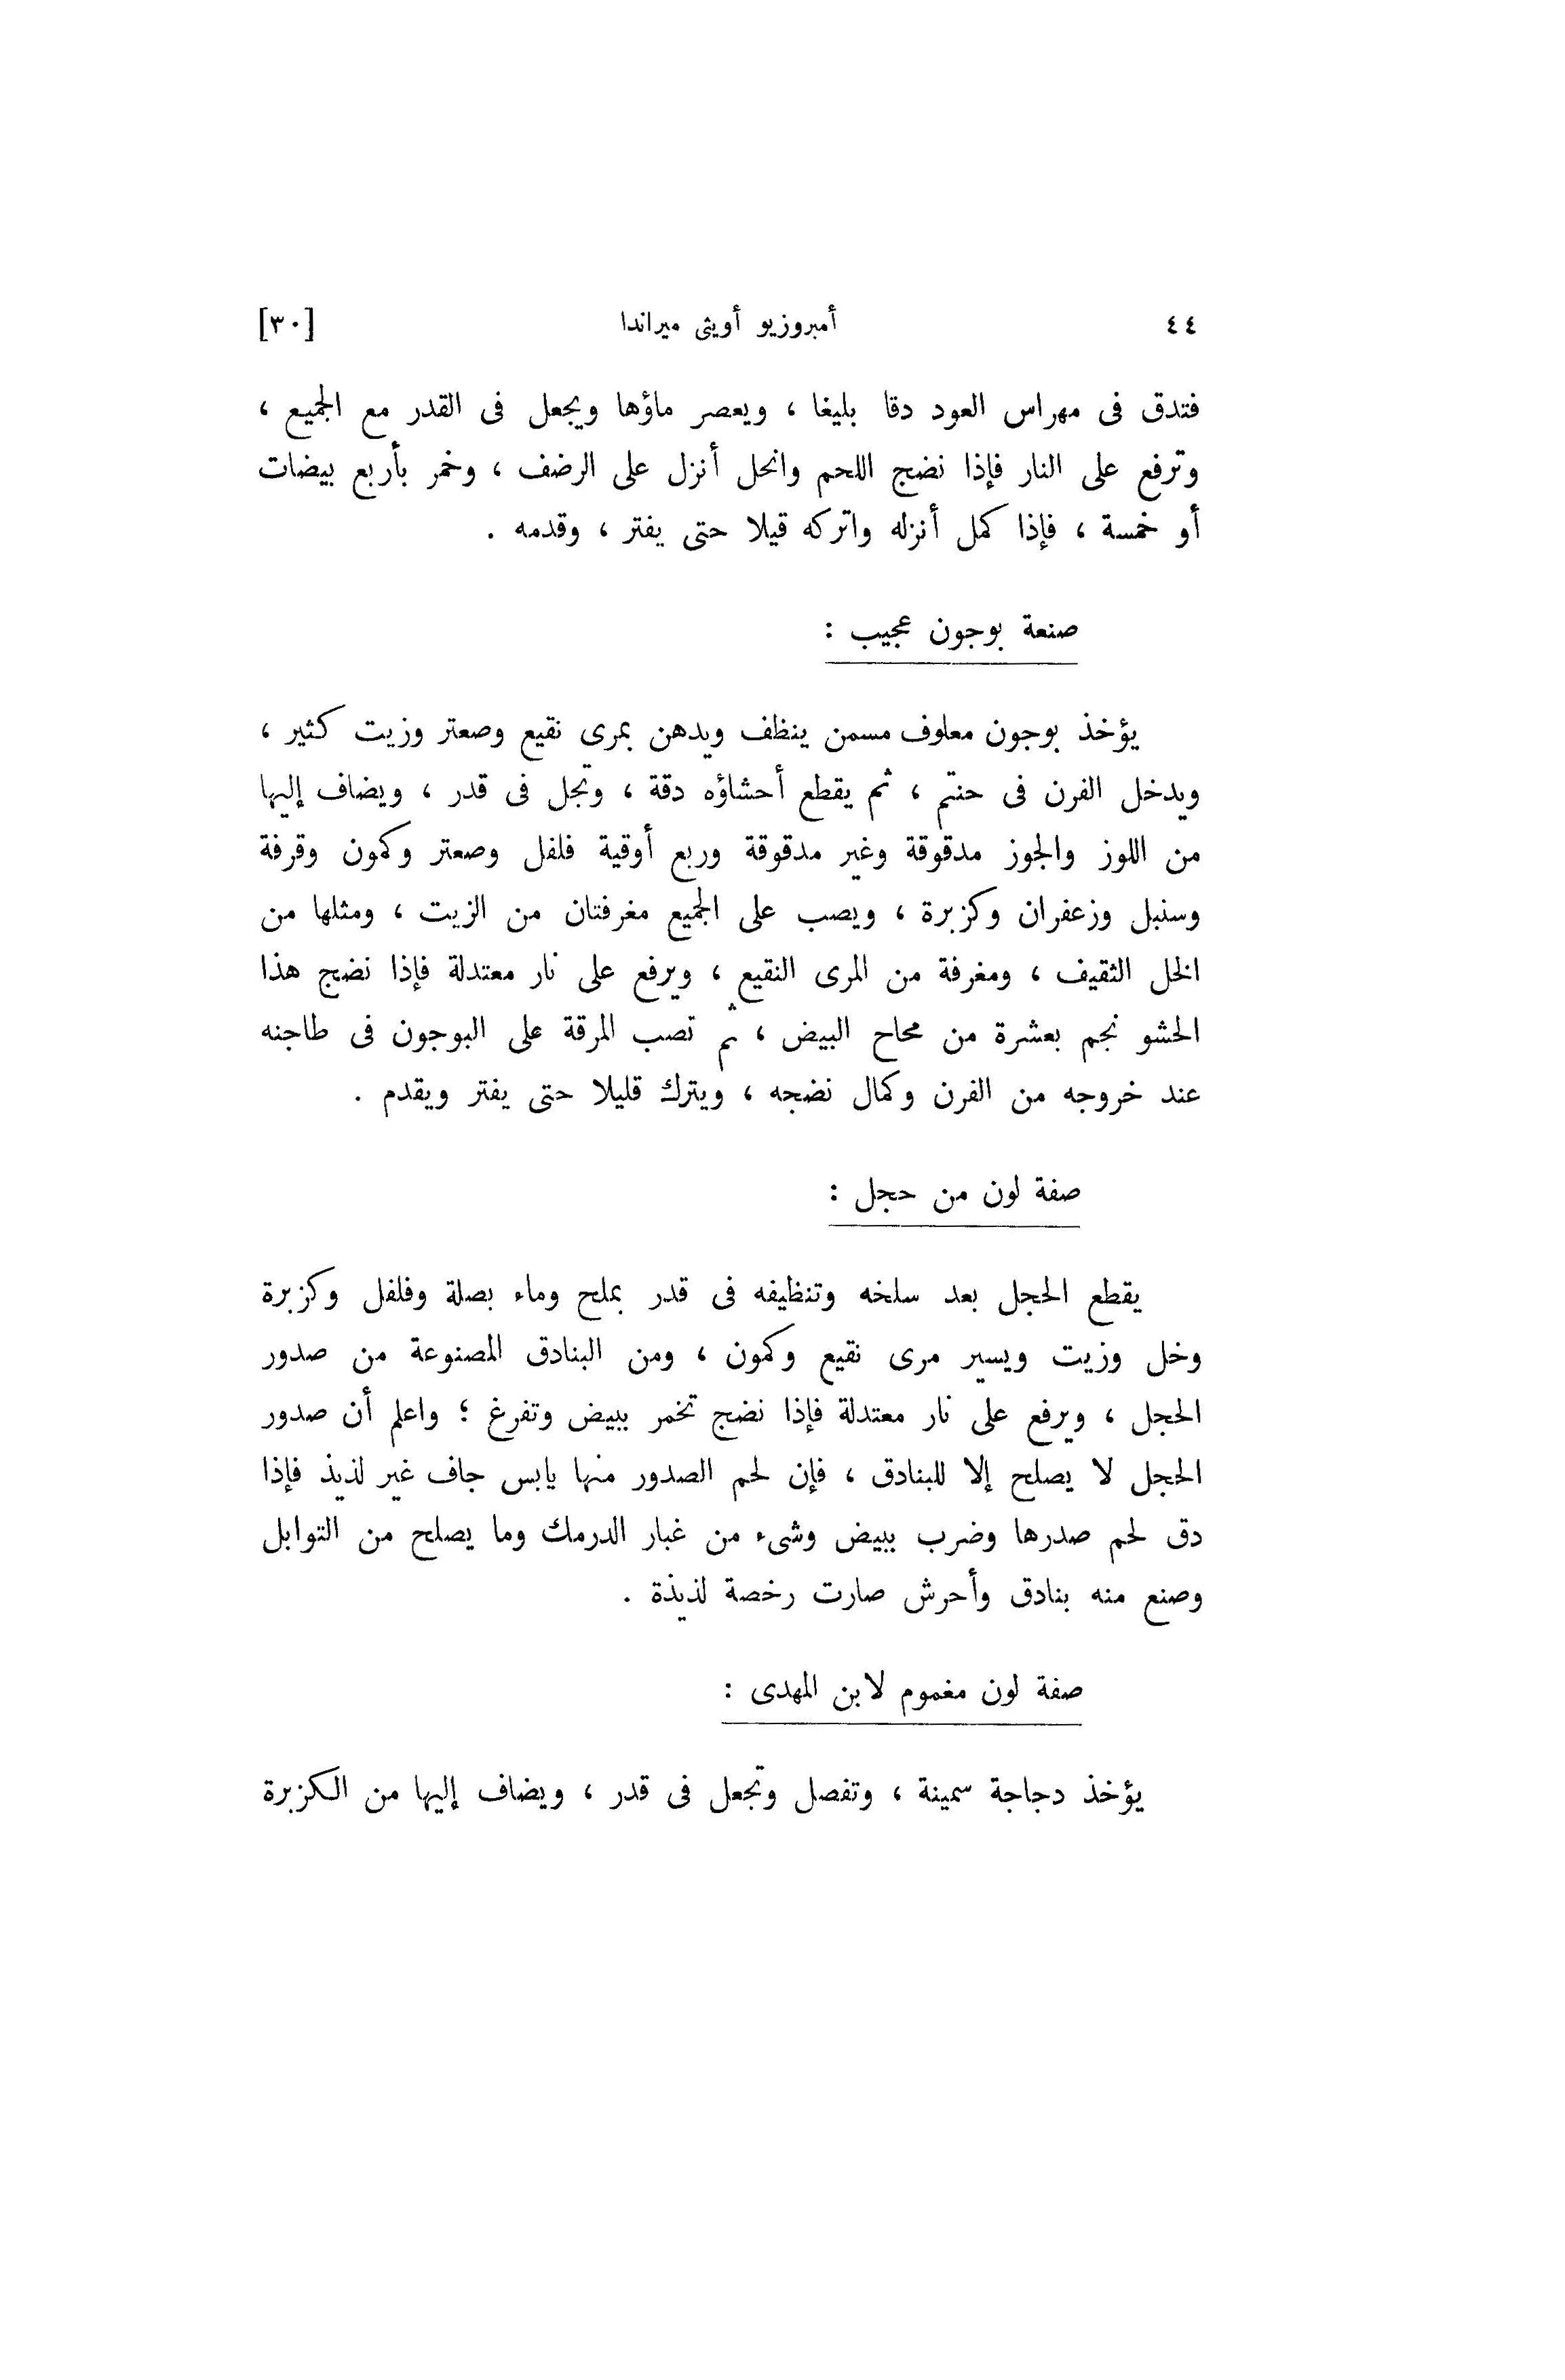 ٤٤ أمبروزيو أويثى ميراندا [٣٠]
فتدق فى مهراس العود دقا بليغا ، ويعصر ماؤها ويجعل فى القدر مع الجميع ،
وترفع على النار فإذا نضج اللحم وانحل أنزل على الرضف ، وخمر بأربع بيضات
أو خمسة ، فإذا كمل أنزله واتركه قيلا حتى يفتر ، وقدمه .
صنعة بوجون عجيب :
يؤخذ بوجون معلوف مسمن ينظف ويدهن بمرى نقيع وصعتر وزيت كثير ،
ويدخل الفرن فى حنتم ، ثم يقطع أحشاؤه دقة ، وتجل فى قدر ، ويضاف إليها
من اللوز والجوز مدقوقة وغير مدقوقة وربع أوقية فلفل وصعتر وكمون وقرفة
وسنبل وزعفران وكزبرة ، ويصب على الجميع مغرفتان من الزيت ، ومثلها من
الخل الثقيف ، ومغرفة من المرى النقيع ، ويرفع على نار معتدلة فإذا نضج هذا
الحشو نجم بعشرة من محاح البيض ، ثم تصب المرقة على البوجون فى طاجنه
عند خروجه من الفرن وكمال نضجه ، ويترك قليلا حتى يفتر ويقدم .
صفة لون من حجل :
يقطع الحجل بعد سلخه وتنظيفه فى قدر بملح وماء بصلة وفلفل وكزبرة
وخل وزيت ويسير مرى نقيع وكمون ، ومن البنادق المصنوعة من صدور
الحجل ، ويرفع على نار معتدلة فإذا نضج تخمر ببيض وتفرغ ؛ واعلم أن صدور
الحجل لا يصلح إلا للبنادق ، فإن لحم الصدور منها يابس جاف غير لذيذ فإذا
دق لحم صدرها وضرب ببيض وشىء من غبار الدرمك وما يصلح من التوابل
وصنع منه بنادق وأحرش صارت رخصة لذيذة .
صفة لون مغموم لابن المهدى :
يؤخذ دجاجة سمينة ، وتفصل وتجعل فى قدر ، ويضاف إليها من الكزبرة